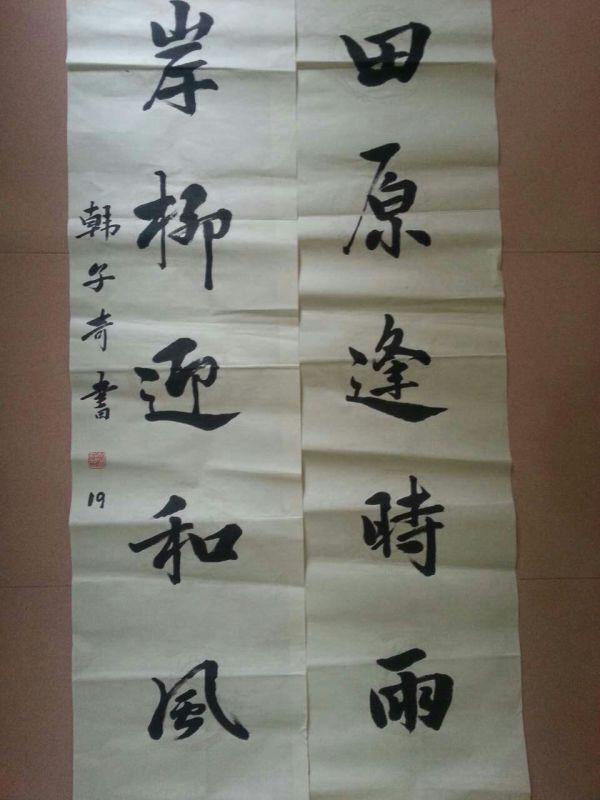 田原逢時雨
岸柳迎和風
韩子奇書
19